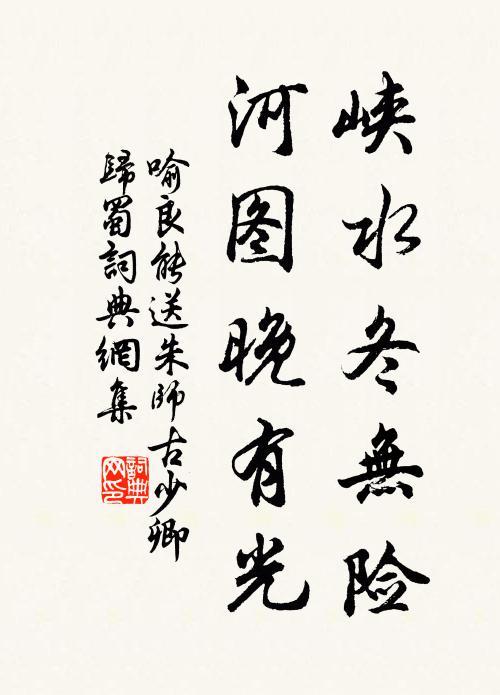 峡水冬無险
河图晚有光
喻良能送朱師古少卿
歸蜀詞典網集
詞典网印